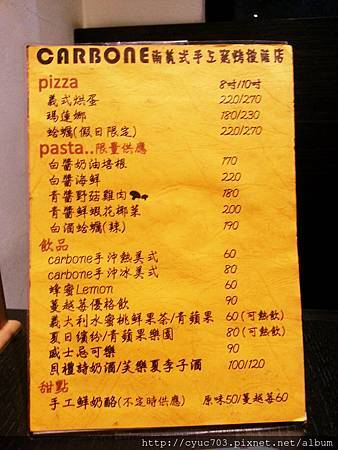 CARBONE南義式手工窯烤披薩店
pizza 8吋/10吋
義式烘蛋 220/270
瑪蓮娜 180/230
蛤蠣(假日限定) 220/270
pasta..限量供應
白醬奶油培根 170
白醬海鮮 220
青醬野菇雞肉 180
青醬鮮蝦花椰菜 200
白酒蛤蠣(辣) 190
飲品
carbone手沖熱美式 60
carbone手沖冰美式 80
蜂蜜Lemon 60
蔓越莓優格飲 90
義大利水蜜桃鮮果茶/青蘋果 60(可熱飲)
夏日繽紛/青蘋果樂園 80(可熱飲)
威士忌可樂 90
貝禮詩奶酒/笑樂夏季子酒 100/120
甜點
手工鮮奶酪(不定時供應) 原味50/蔓越莓60
http://cyuc703.pixnet.net/album